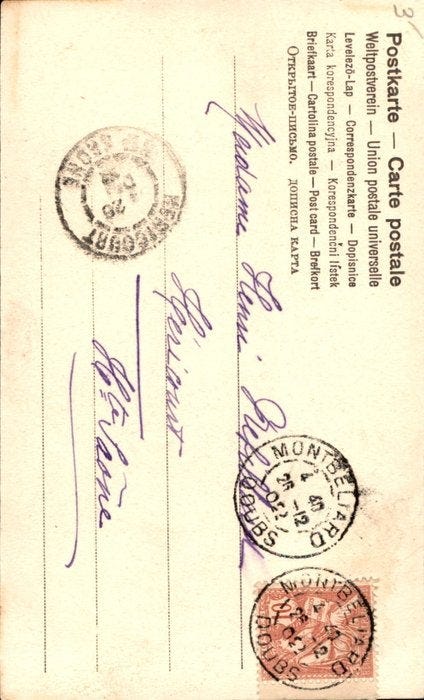 3
Postkarte — Carte postale
Weltpostverein — Union postale universelle
Levelezö-Lap — Correspondenzkarte — Dopisnice
Karta korespondencyjna — Korespondenční lístek
Briefkaart — Cartolina postale — Post card — Brefkort
Открытое-письмо. дописна карта
Madame Henri
Héricourt
Hte Saône
HÉRICOURT
MONTBÉLIARD
4 40
26 -12
DOUBS
MONTBÉLIARD
DOUBS
10